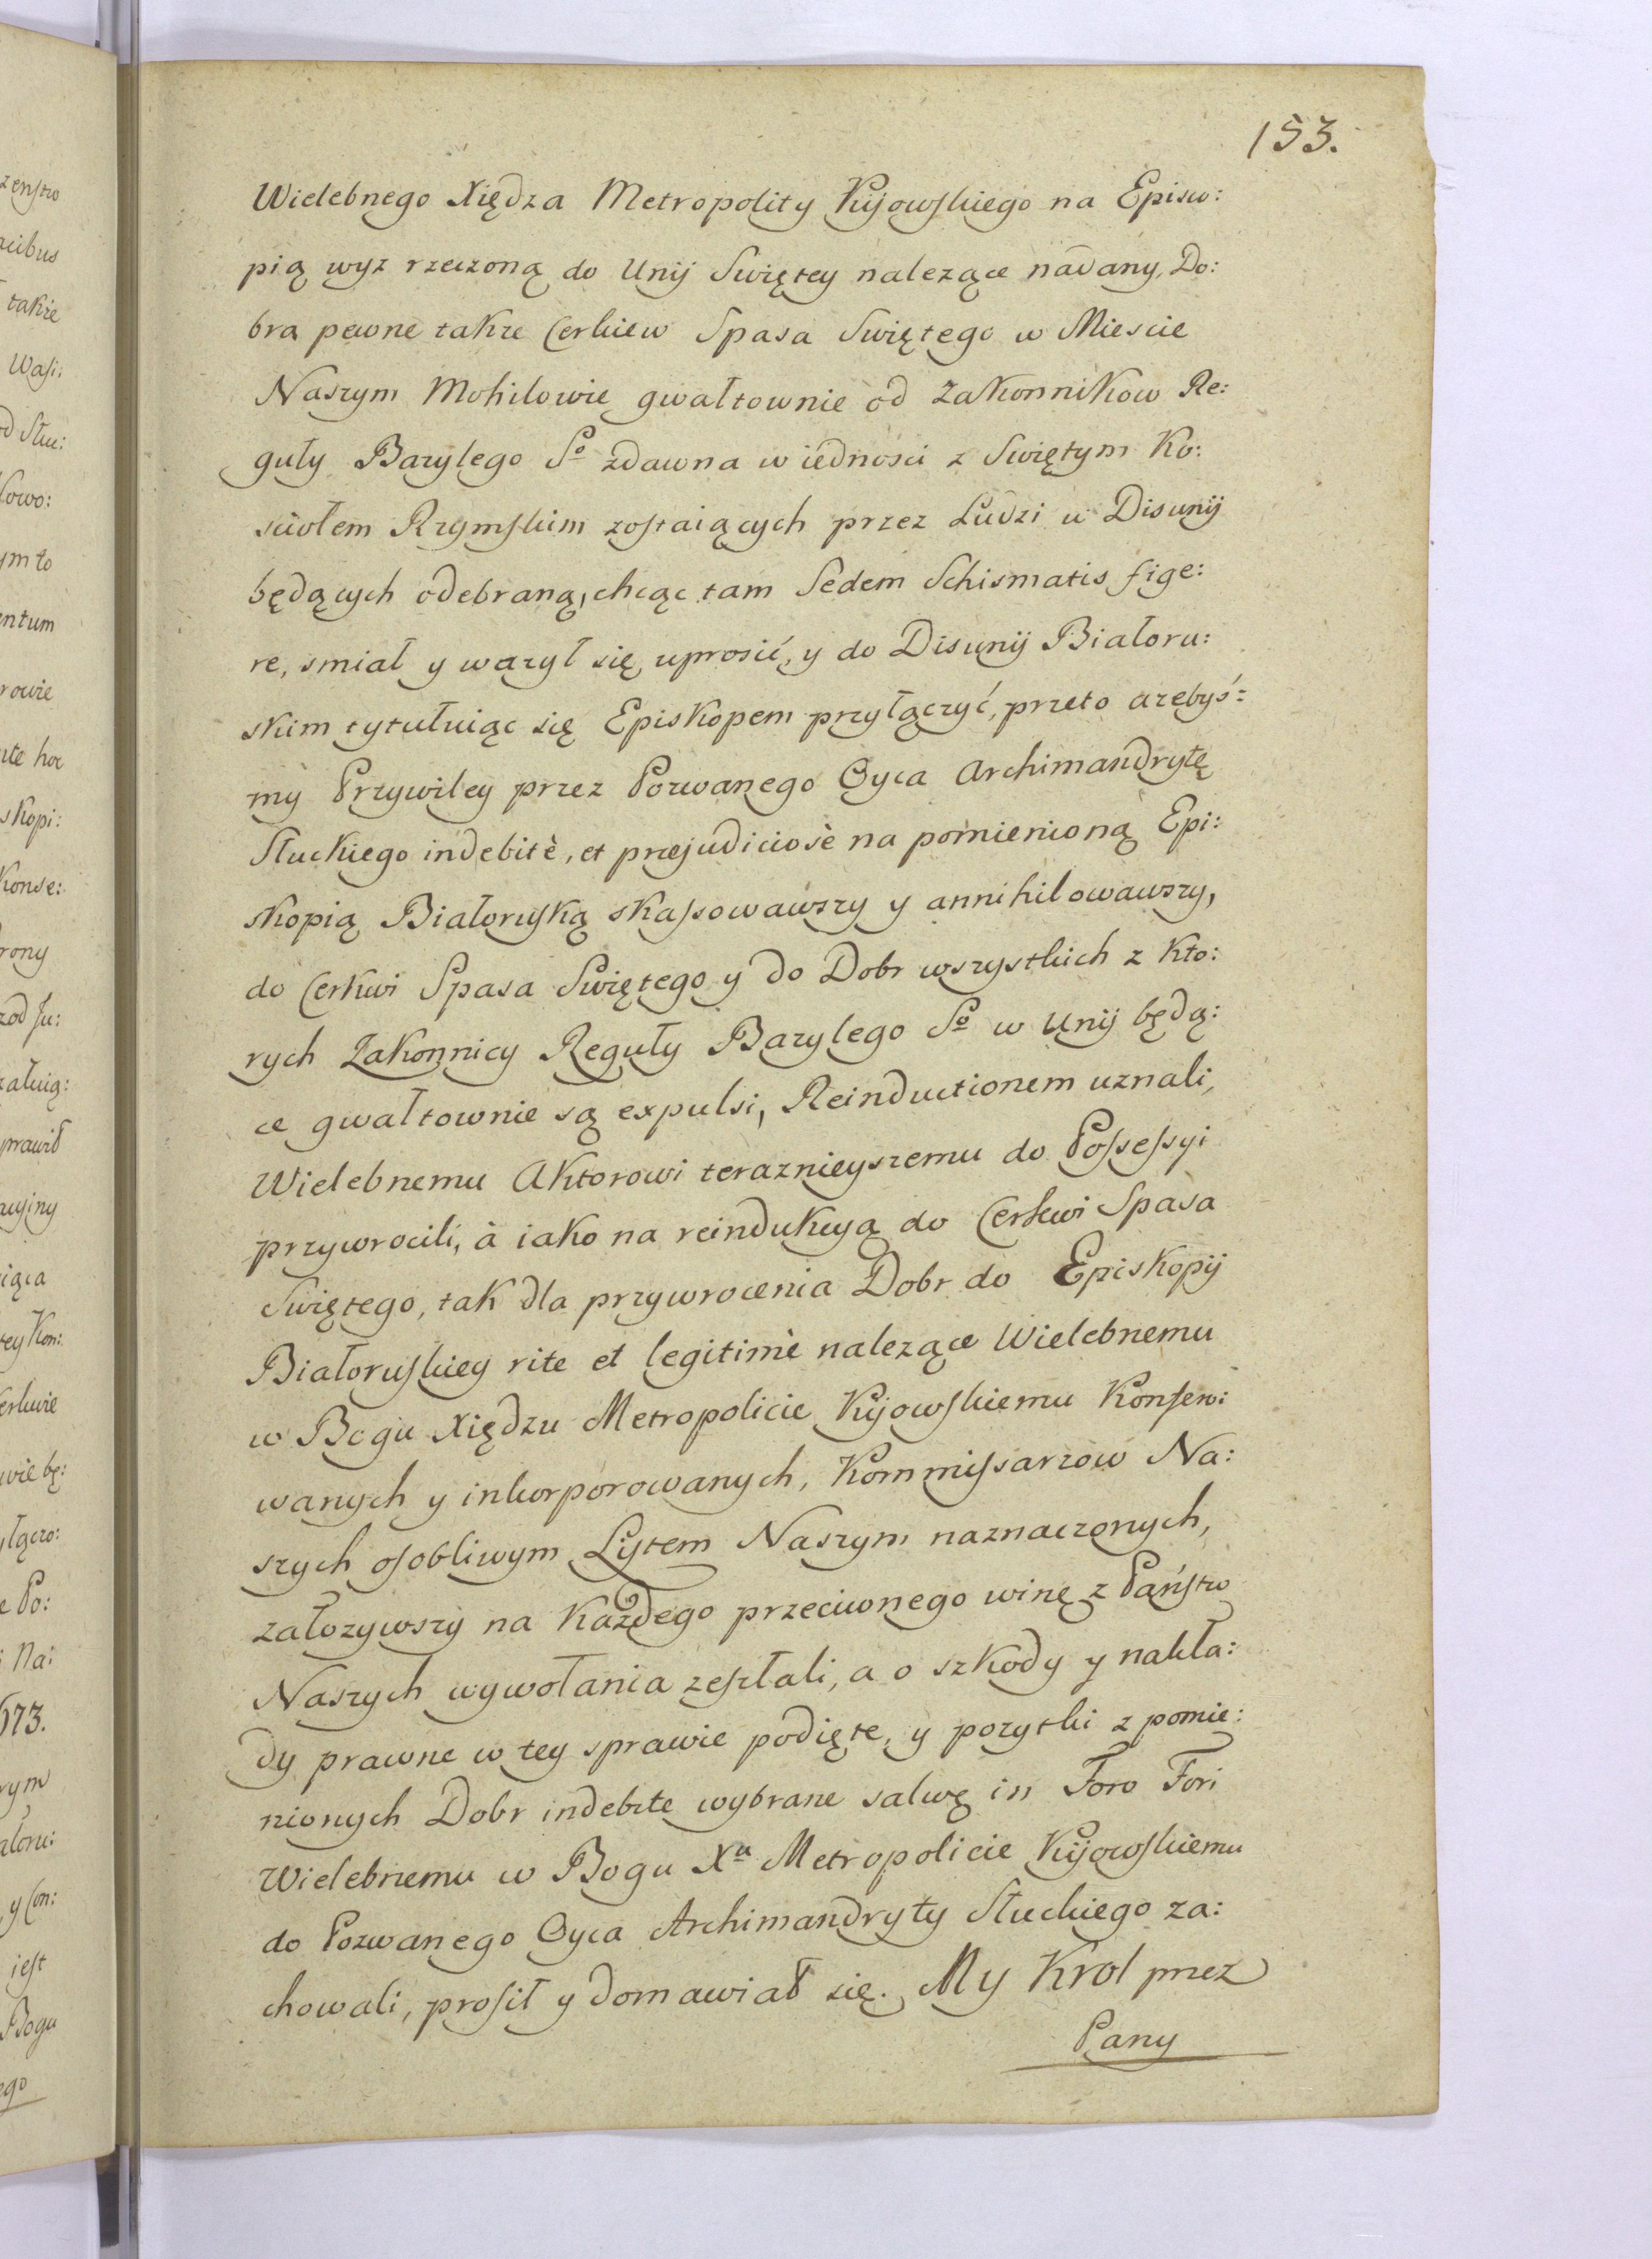 153.
Wielebnego Xiędza Metropolity Kijowskiego na Episko:
pią wyz rzeczoną do Unij Swiętey nalezące nadany, Do:
bra pewne takze Cerkiew Spasa Swiętego w Miescie
Naszym Mohilowie gwałtownie od Zakonnikow Re:
guły Bazylego Sº zdawna w iednosci z Swiętym Ko:
sciołem Rzymskim zostaiących przez Ludzi w Disunij
będących odebraną, chcąc tam Sedem Schismatis fige:
re, smiał y wazył się uprosić, y do Disunij Białoru:
skim tytułuiąc się Episkopem przyłączyć, przeto azebyś:
my Przywiley przez Pozwanego Oyca Archimandrytę
Słuckiego indebitè, et præjudiciosè na pomienioną Epi:
skopią Białoruską skassowawszy y annihilowawszy,
do Cerkwi Spasa Swiętego y do Dobr wszystkich z kto:
rych Zakonnicy Reguły Bazylego Sº w Unij będą:
ce gwałtownie są expulsi, Reinductionem uznali,
Wielebnemu Aktorowi teraznieyszemu do Possessyi
przywrocili, à iako na reindukcyą do Cerkwi Spasa
Swiętego, tak dla przywrocenia Dobr do Episkopij
Białoruskiey rite et legitimè nalezące Wielebnemu
w Bogu Xiędzu Metropolicie Kijowskiemu Konserw:
wanych y inkorporowanych, Kommissarzow Na:
szych osobliwym Lystem Naszym naznaczonych,
załozywszy na kazdego przeciwnego winę z Państw
Naszych wywołania zesłali, a o szkody y nakła:
dy prawne w tey sprawie podięte, y pozytki z pomie:
nionych Dobr indebite wybrane salwę in Foro Fori
Wielebnemu w Bogu Xu Metropolicie Kijowskiemu
do Pozwanego Oyca Archimandryty Słuckiego za:
chowali, prosił y domawiał się. My Krol przez
Pany